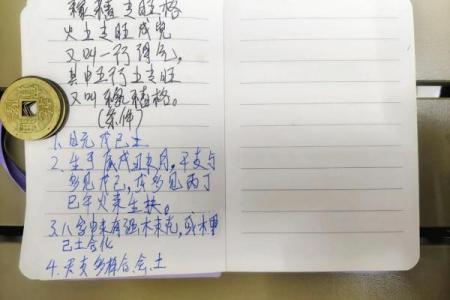 稼穑专旺格
火土专旺成鬼
又叫一行得气,
其中五行土专旺
又叫稼穑格。
(条件)
1. 日元戊己土
2. 生于辰戌丑未月,干支与
多见戊己,或多见丙丁
巳午火来生扶。
3. 八字中未有强木来克,或木甲
己土合化
4. 天支多样合、会、土